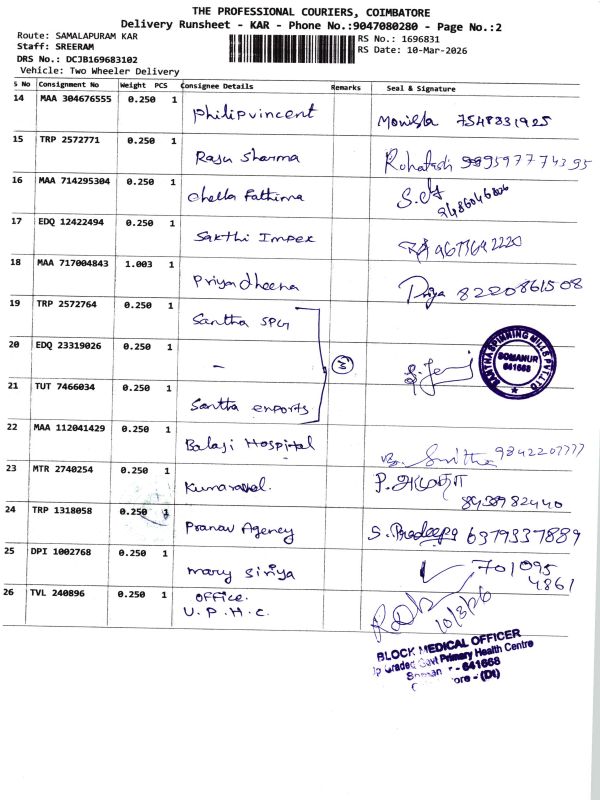 THE PROFESSIONAL COURIERS, COIMBATORE
Delivery Runsheet - KAR - Phone No.:9047080280 - Page No.:2
Route: SAMALAPURAM KAR
RS No.: 1696831
Staff: SREERAM
RS Date: 10-Mar-2026
DRS No.: DCJB169683102
Vehicle: Two Wheeler Delivery
S No Consignment No Weight PCS Consignee Details Remarks Seal & Signature
14 MAA 304676555 0.250 1 Philipvincent 7548331925
15 TRP 2572771 0.250 1 Raju Sharma
16 MAA 714295304 0.250 1 Chella Fathima
17 EDQ 12422494 0.250 1 Sakthi Impex
18 MAA 717004843 1.003 1 Priyadheena Priya 8220861508
19 TRP 2572764 0.250 1 Santha SPG
20 EDQ 23319026 0.250 1 - 3
SANTHA SPINNING MILLS PVT.LTD
SOMANUR
641668
21 TUT 7466034 0.250 1 Santha exports
22 MAA 112041429 0.250 1 Balaji Hospital
23 MTR 2740254 0.250 1 Kumaravel. P.
8438982440
24 TRP 1318058 0.250 1 Pranav Agency S. Pradeepa 6379337889
25 DPI 1002768 0.250 1 mary siriya 701095
4861
26 TVL 240896 0.250 1 office.
U.P.H.C.
10/3/26
BLOCK MEDICAL OFFICER
Graded Govt Primary Health Centre
- 641668
- (Dt)